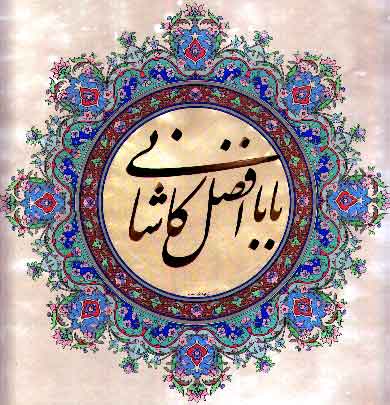 بابا افضل کاشانی